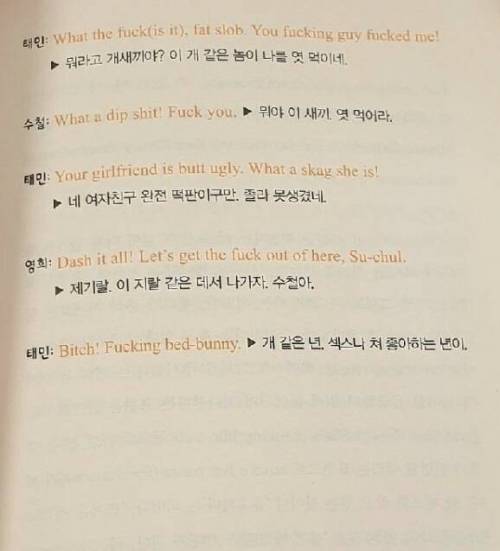 태민: What the fuck(is it), fat slob. You fucking guy fucked me!
▶ 뭐라고 개새끼야? 이 개 같은 놈이 나를 엿 먹이네.
수철: What a dip shit! Fuck you. ▶ 뭐야 이 새끼. 엿 먹어라.
태민: Your girlfriend is butt ugly. What a skag she is!
▶ 네 여자친구 완전 떡판이구만. 졸라 못생겼네.
영희: Dash it all! Let's get the fuck out of here, Su-chul.
▶ 제기랄. 이 지랄 같은 데서 나가자. 수철아.
태민: Bitch! Fucking bed-bunny. ▶ 개 같은 년. 섹스나 쳐 좋아하는 년이.